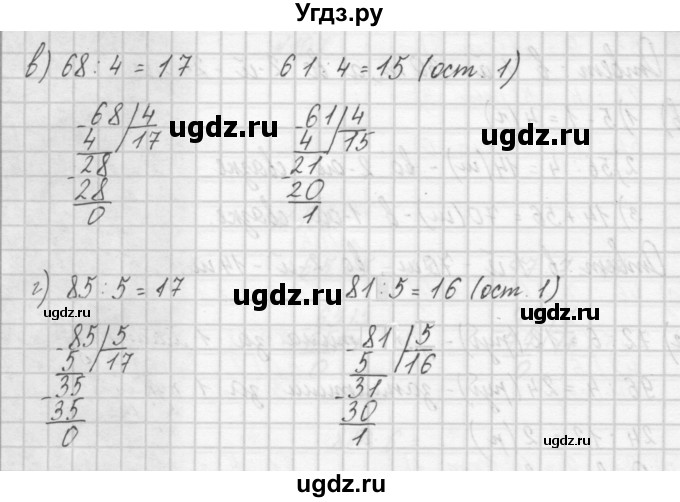 Угдз.ру
в) 68 : 4 = 17    61 : 4 = 15 (ост. 1)
-68 | 4    -61 | 4
4 | 17    4 | 15
-28    -21
28    20
0    1
ugdz.ru    ugdz.ru
г) 85 : 5 = 17    81 : 5 = 16 (ост. 1)
ugdz.ru    ugdz.ru    ugdz.ru
-85 | 5    -81 | 5
5 | 17    5 | 16
-35    -31
35    30
0    1
ugdz.ru    ugdz.ru
ugdz.ru